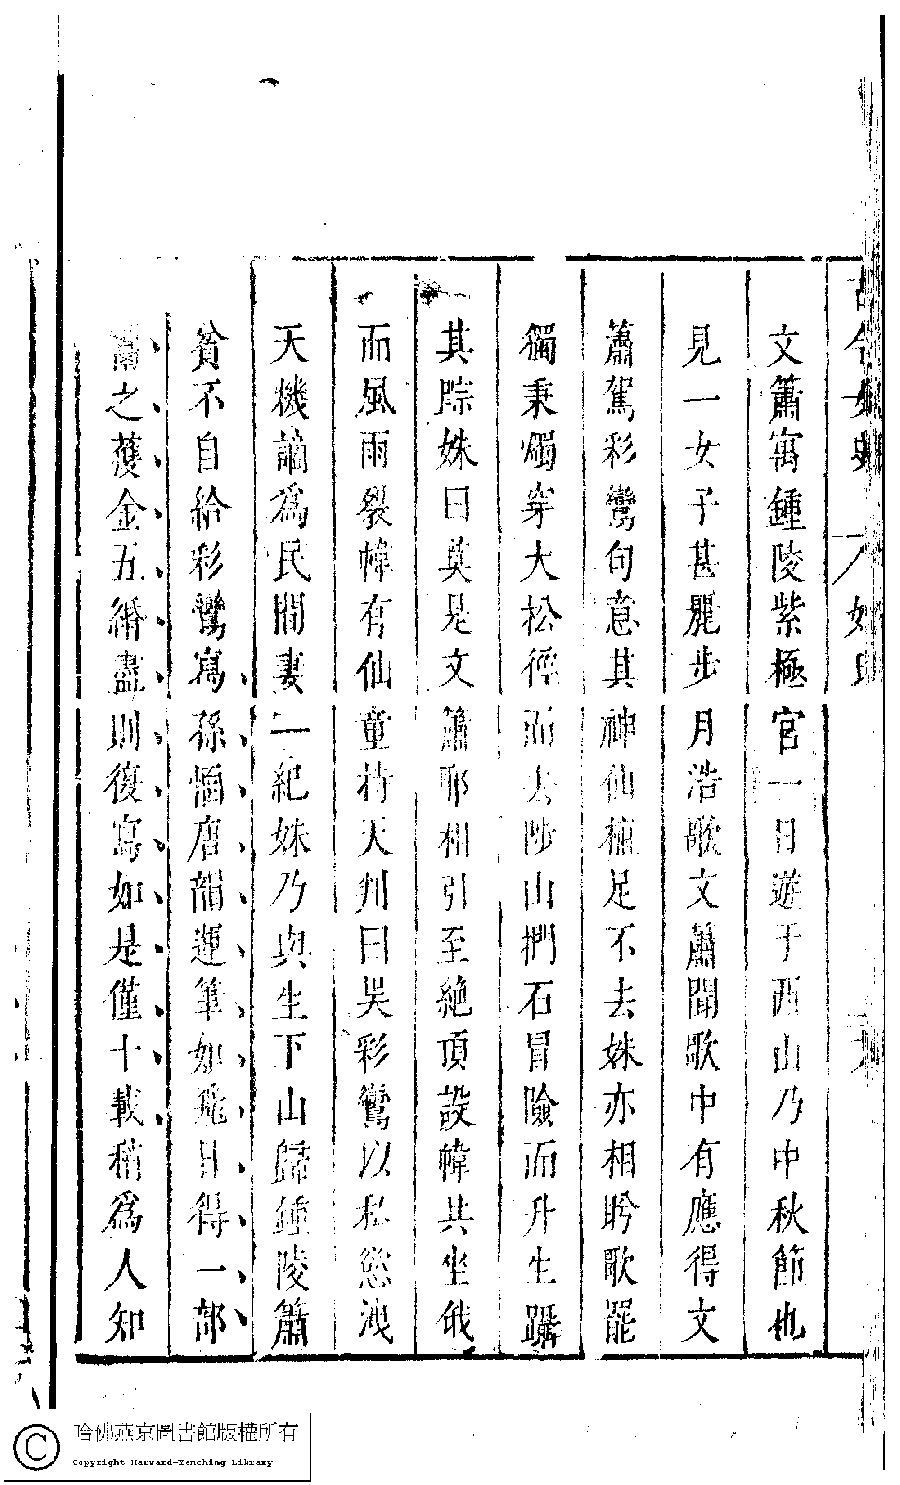 古今女史
文簫寓鍾陵紫極宮一日遊于西山乃中秋節也
見一女子甚麗步月浩歌文蕭聞歌中有應得文
蕭駕彩鸞句意其神仙植足不去姝亦相盻歌罷
獨秉燭穿大松徑而去陟山捫石冒險而升生躡
其踪姝曰莫是文簫耶相引至絶頂設幃共坐俄
而風雨裂幃有仙童持天判曰吴彩鸞以私慾洩
天機謫為民間妻一紀姝乃與生下山歸鍾陵簫
貧不自給彩鸞寫孫愐唐韻運筆如飛日得一部
鬻之獲金五緡盡則復寫如是僅十載稍為人知
哈佛燕京圖書館版權所有
Copyright Harvard-Yenching Library